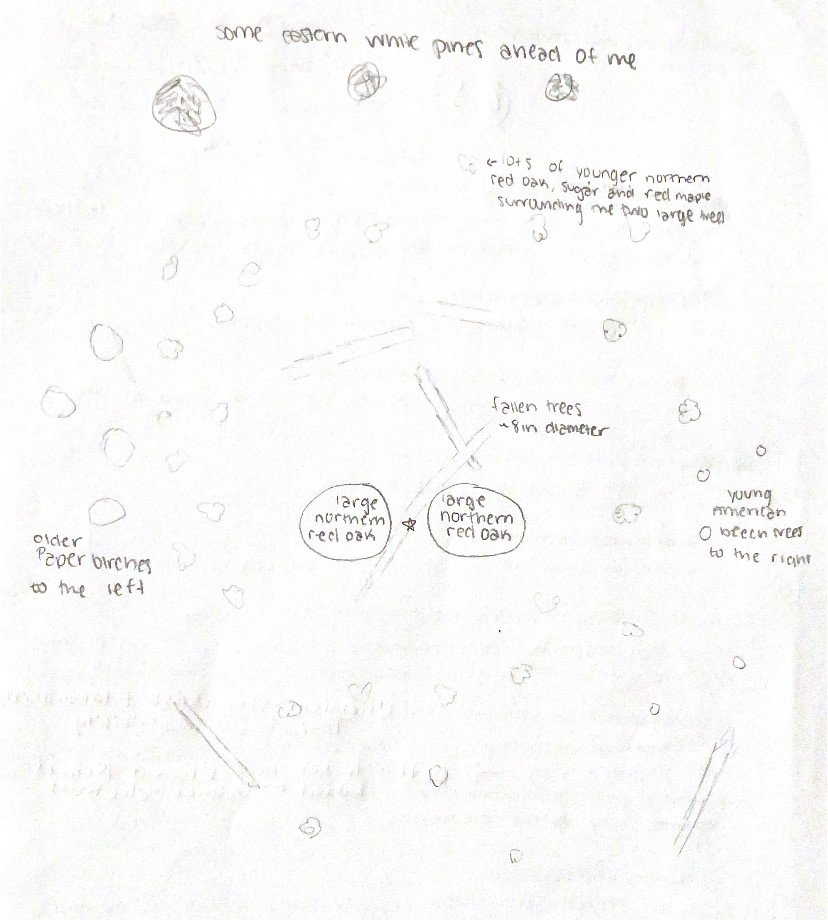 some eastern white pines ahead of me
← lots of younger northern
red oak, sugar and red maple
surrounding me two large trees
fallen trees
~8in diameter
large
northern
red oak
large
northern
red oak
young
American
beech trees
to the right
older
Paper birches
to the left